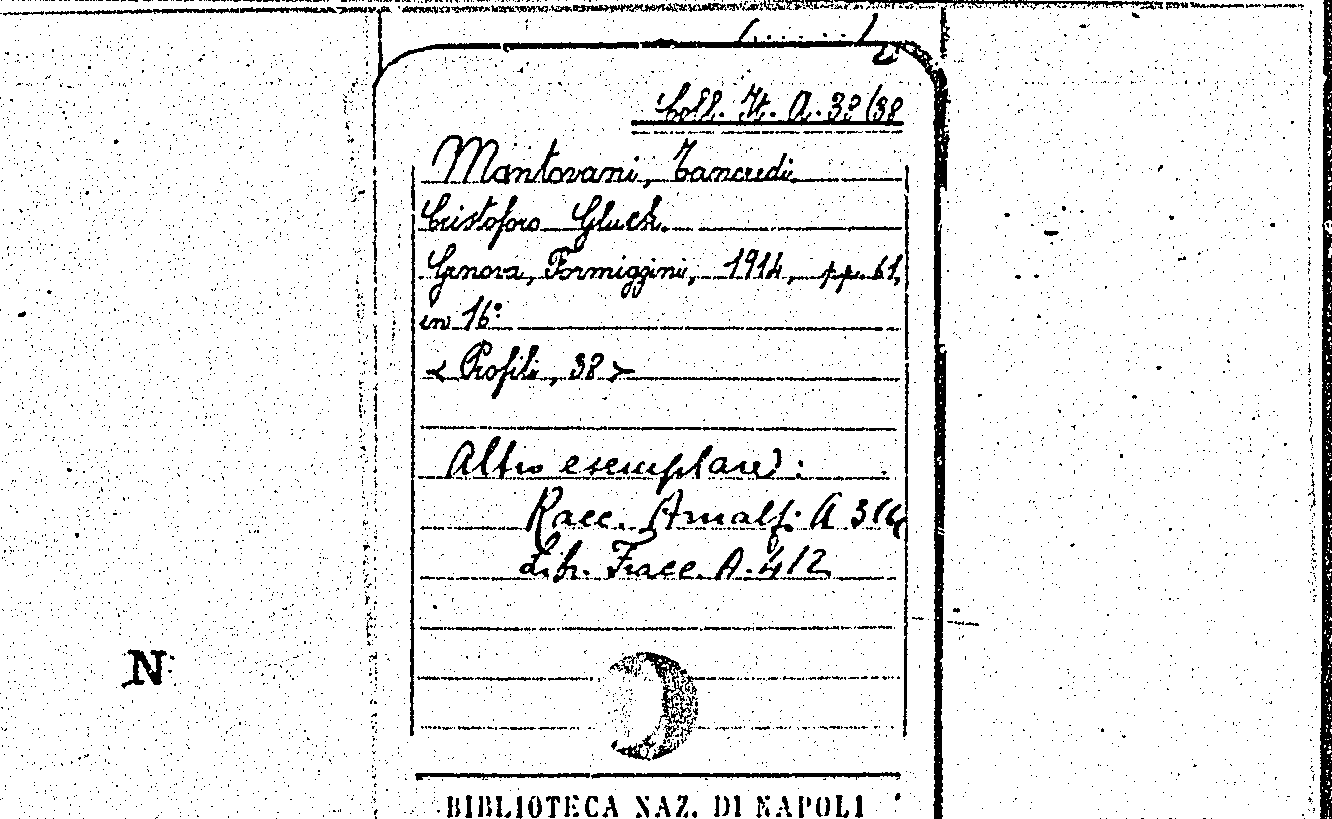 Coll. It. A. 39/38
Mantovani, Tancredi.
Cristoforo Gluck.
Genova, Formiggini, 1914, pp. 61,
in 16°
< Profili, 38 >
Altro esemplare:
Racc. Amalf. A 314
Libr. Fracc. A. 412
N
BIBLIOTECA NAZ. DI NAPOLI